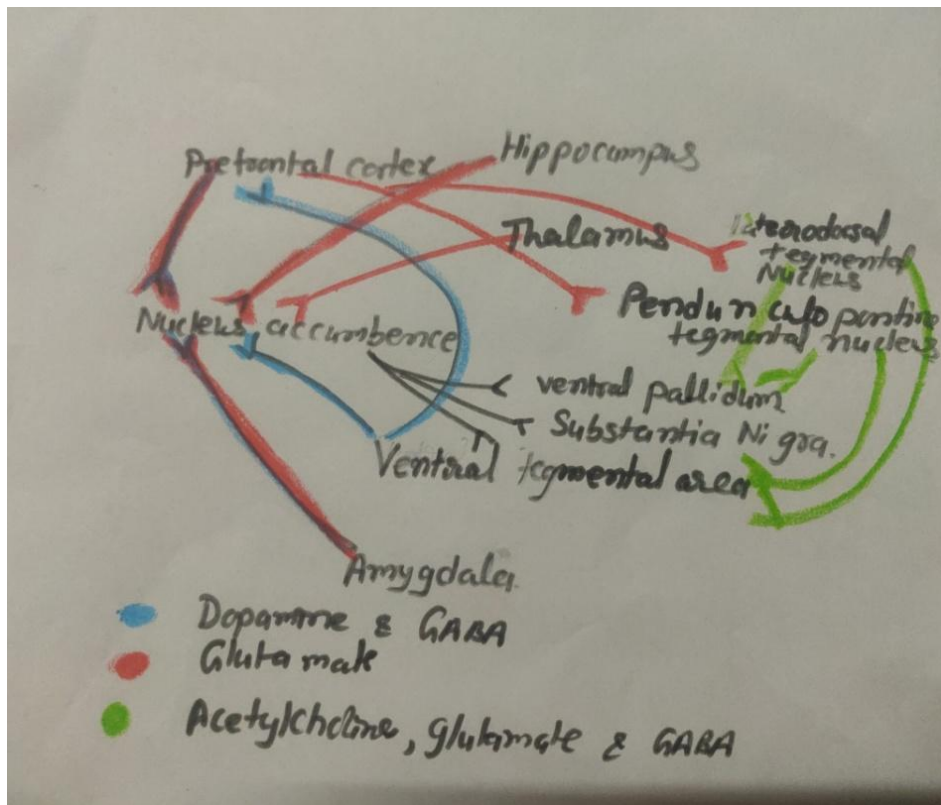 Prefrontal cortex
Hippocampus
Thalamus
laterodorsal
tegmental
Nucleus
Pendunculo pontine
tegmental nucleus
Nucleus accumbence
ventral pallidum
Substantia Nigra.
Ventral tegmental area
Amygdala
Dopamine & GABA
Glutamate
Acetylcholine, glutamate & GABA